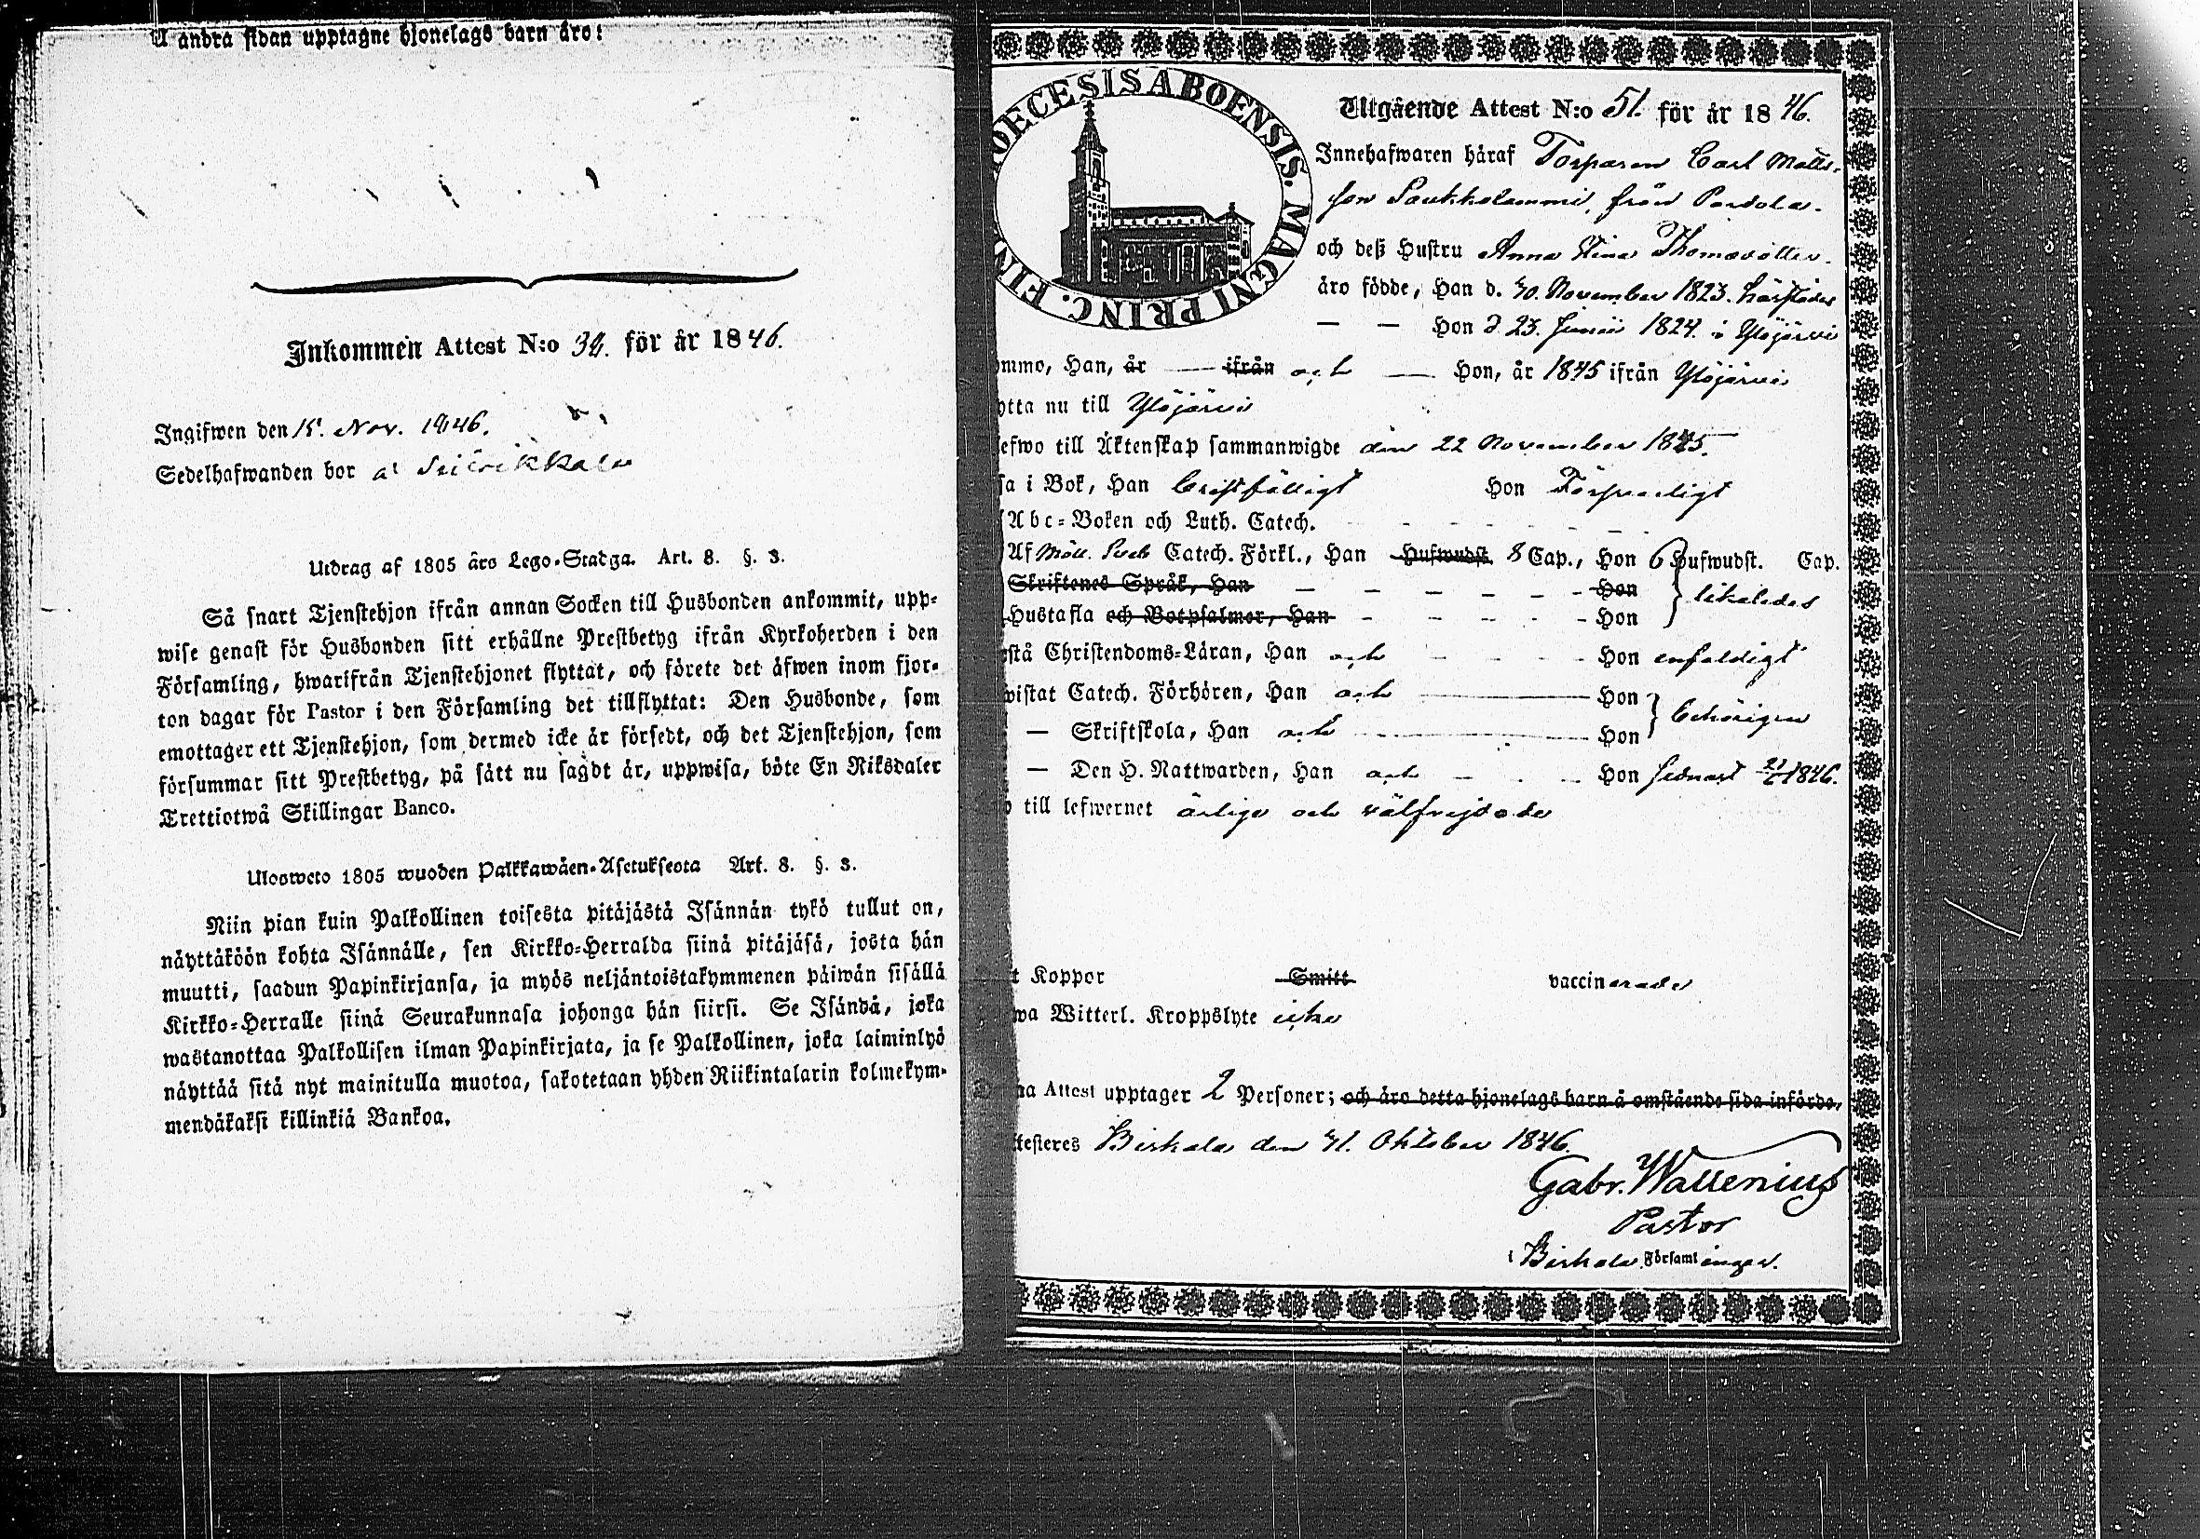 A andra sidan upptagne hjonelags barn äro:
Inkommen Attest N:o 34. för år 1846.
Ingifwen den 15. Nov. 1846.
Sedelhafwanden bor
Utdrag af 1805 års Lego-Stadga. Art. 8. §. 3.
Så snart Tjenstehjon ifrån annan Socken till Husbonden ankommit, upp-
wise genast för Husbonden sitt erhållne Prestbetyg ifrån Kyrkoherden i den
Församling, hwarifrån Tjenstehjonet flyttat, och förete det äfwen inom fjor-
ton dagar för Pastor i den Församling det tillflyttat: Den Husbonde, som
emottager ett Tjenstehjon, som dermed icke är försedt, och det Tjenstehjon, som
försummar sitt Prestbetyg, på sätt nu sagdt är, uppwisa, böte En Riksdaler
Trettiotwå Skillingar Banco.
Ulosweto 1805 wuoden Palkkawäen-Asetuksesta Art. 8. §. 3.
Niin pian kuin Palkollinen toisesta pitäjästä Isännän tykö tullut on,
näyttäköön kohta Isännälle, sen Kirkko-Herralda siinä pitäjäsä, josta hän
muutti, saadun Papinkirjansa, ja myös neljäntoistakymmenen päiwän sisällä
Kirkko-Herralle siinä Seurakunnasa johonga hän siirsi. Se Isändä, joka
wastanottaa Palkollisen ilman Papinkirjata, ja se Palkollinen, joka laiminlyö
näyttää sitä nyt mainitulla muotoa, sakotetaan yhden Riikintalarin kolmekym-
mendäkaksi killinkiä Bankoa.
OECESIS ABOENSIS. MAGNI PRINC. FIN
Utgående Attest N:o 51. för år 1846.
Innehafwaren häraf Torparen Carl Matts-
son Saukkolammi, från Pardola.
och deß Hustru Anna Stina Thomasdotter.
äro födde, Han d. 30. November 1823. härstädes
— — Hon d 23. Junii 1824. i Ylöjärvi
ommo, Han, år — ifrån och — Hon, år 1845 ifrån Ylöjärvi
ytta nu till Ylöjärvi
efwo till Äktenskap sammanwigde den 22 November 1845.
sa i Bok, Han Christfälligt Hon Försvarligt
Abc-Boken och Luth. Catech.
Af Möll. Sveb Catech. Förkl., Han Hufwudst. 8 Cap., Hon 6 Hufwudst. Cap.
Skriftenes Språk, Han — Hon
Hustafla och Botpsalmer, Han — Hon likaledes
rstå Christendoms-Läran, Han och — Hon enfaldigt
wistat Catech. Förhören, Han och — Hon
— Skriftskola, Han och — Hon behörigen
— Den H. Nattwarden, Han och — Hon sednast 21/6 1846.
till lefwernet ärlige och välfrejdade
t Koppor Smitt vaccinerade
wa Witterl. Kroppslyte icke
na Attest upptager 2 Personer; och äro detta hjonelags barn å omstående sida införde,
ttesteres Birkala den 31. October 1846.
Gabr. Wallenius
Pastor
i Birkala Församlingar.